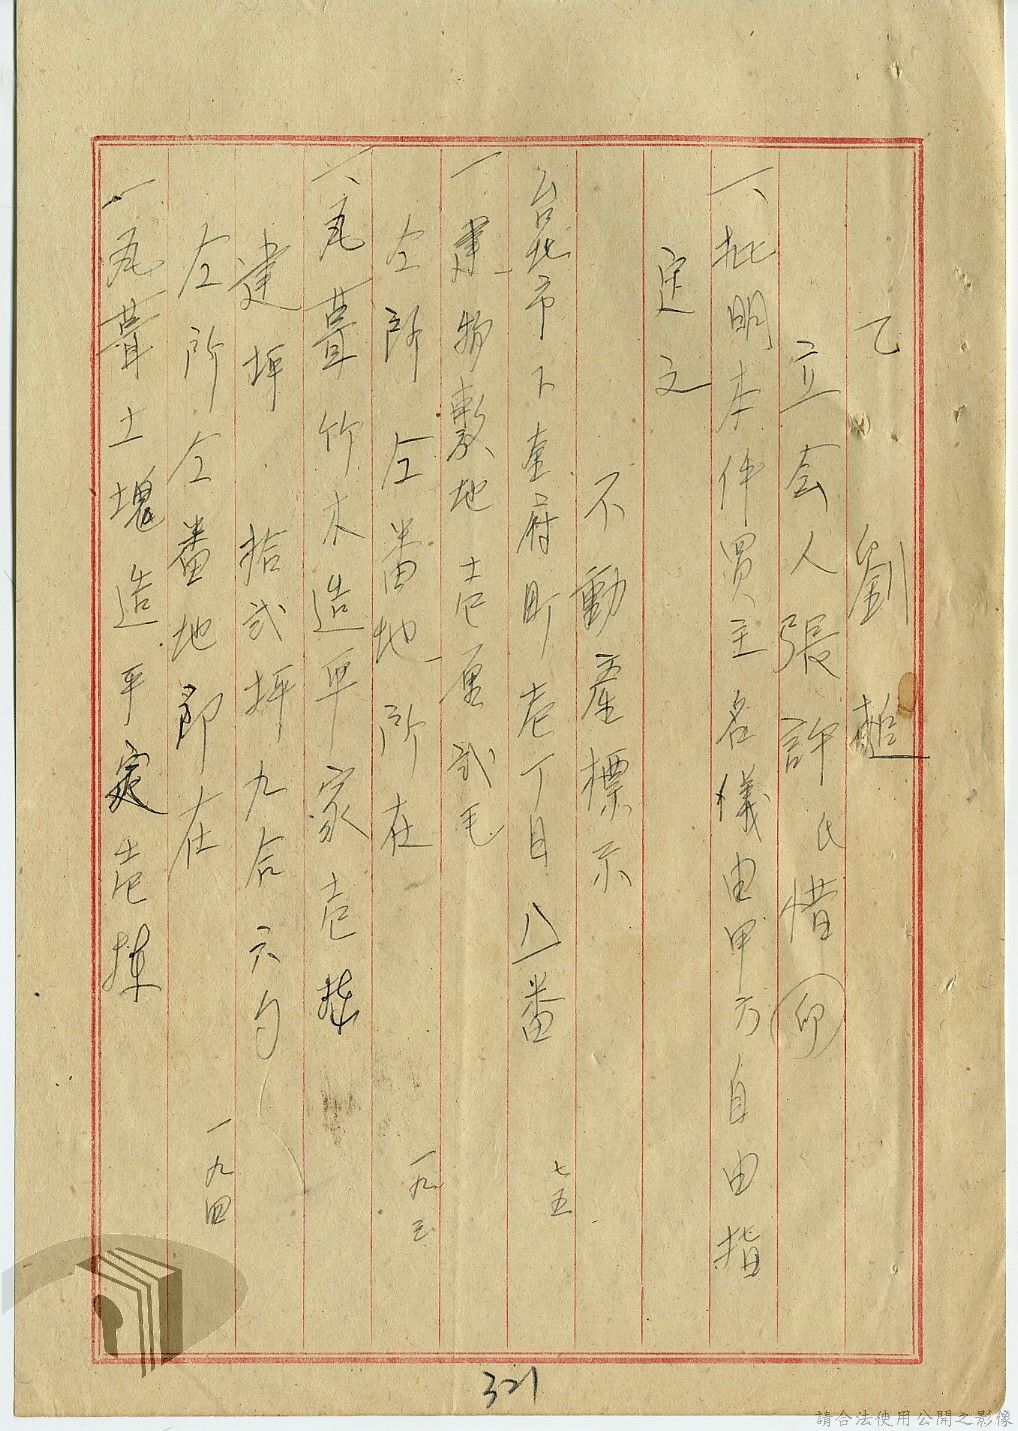 乙 劉
立会人 張許氏惜 印
一、批明本件買主名儀由甲方自由指
定文
不動產標示
台北市下奎府町壱丁目八番 七五
一 建物敷地壱厘弍毛
仝所仝番地所在 一九三
一、瓦葺竹木造平家壱棟
建坪 拾弍坪九合六勺
仝所仝番地即在 一九四
一、瓦葺土塊造平家壱棟
321
請合法使用公開之影像